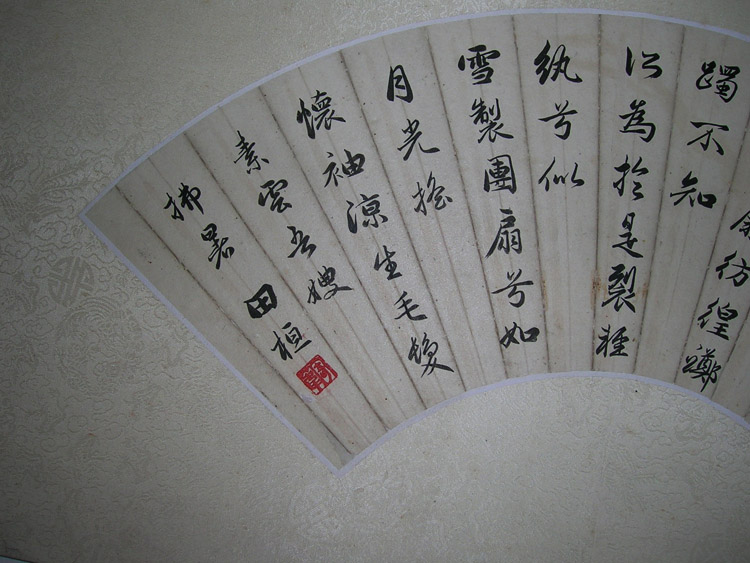 余彷徨躑
躅不知
所為於是裂輕
紈兮似
雪製團扇兮如
月光搖
懷袖涼生毛髮
素雲吾嫂
拂暑 田桓